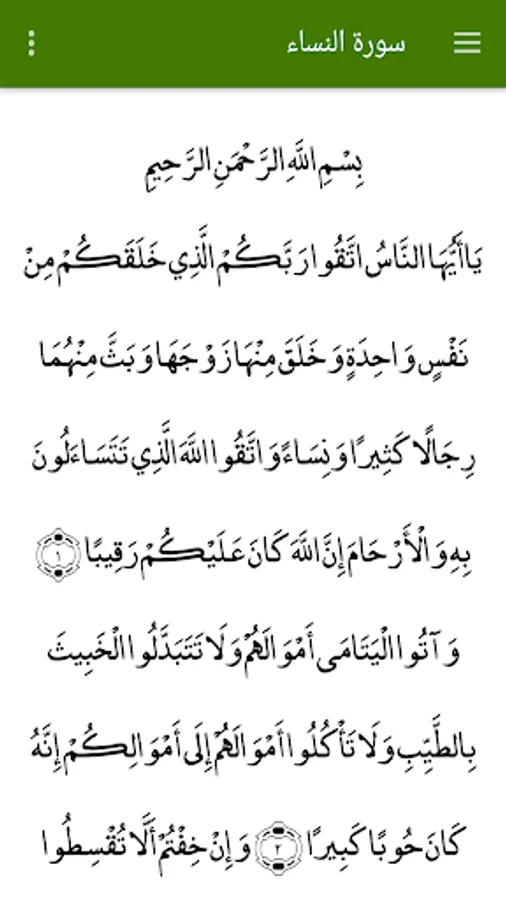 سورة النساء
بِسْمِ اللَّهِ الرَّحْمَنِ الرَّحِيمِ
يَا أَيُّهَا النَّاسُ اتَّقُوا رَبَّكُمْ الَّذِي خَلَقَكُمْ مِنْ
نَفْسٍ وَاحِدَةٍ وَخَلَقَ مِنْهَا زَوْجَهَا وَبَثَّ مِنْهُمَا
رِجَالًا كَثِيرًا وَنِسَاءً وَاتَّقُوا اللَّهَ الَّذِي تَتَسَاءَلُونَ
بِهِ وَالْأَرْحَامَ إِنَّ اللَّهَ كَانَ عَلَيْكُمْ رَقِيبًا ١
وَآتُوا الْيَتَامَى أَمْوَالَهُمْ وَلَا تَتَبَدَّلُوا الْخَبِيثَ
بِالطَّيِّبِ وَلَا تَأْكُلُوا أَمْوَالَهُمْ إِلَى أَمْوَالِكُمْ إِنَّهُ
كَانَ حُوبًا كَبِيرًا ٢ وَإِنْ خِفْتُمْ أَلَّا تُقْسِطُوا